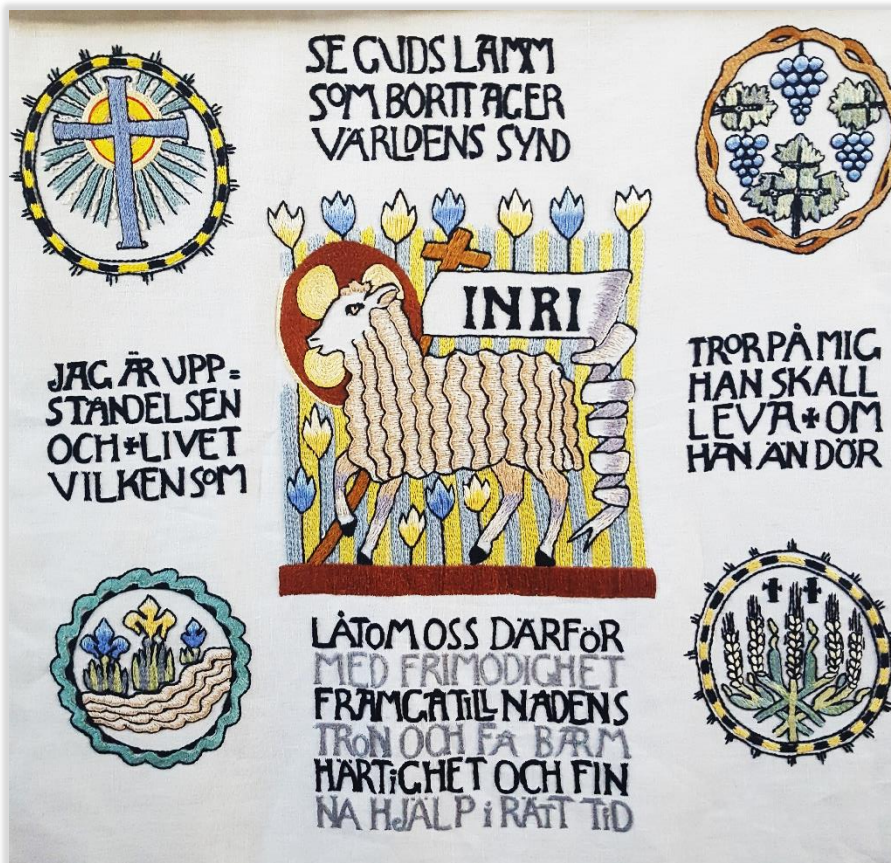 SE GUDS LAMM
SOM BORTTAGER
VÄRLDENS SYND
INRI
JAG ÄR UPP=
STÅNDELSEN
OCH*LIVET
VILKEN SOM
TROR PÅ MIG
HAN SKALL
LEVA*OM
HAN ÄN DÖR
LÅTOM OSS DÄRFÖR
MED FRIMODIGHET
FRAMGÅ TILL NÅDENS
TRON OCH FÅ BARM
HÄRTIGHET OCH FIN
NA HJÄLP I RÄTT TID